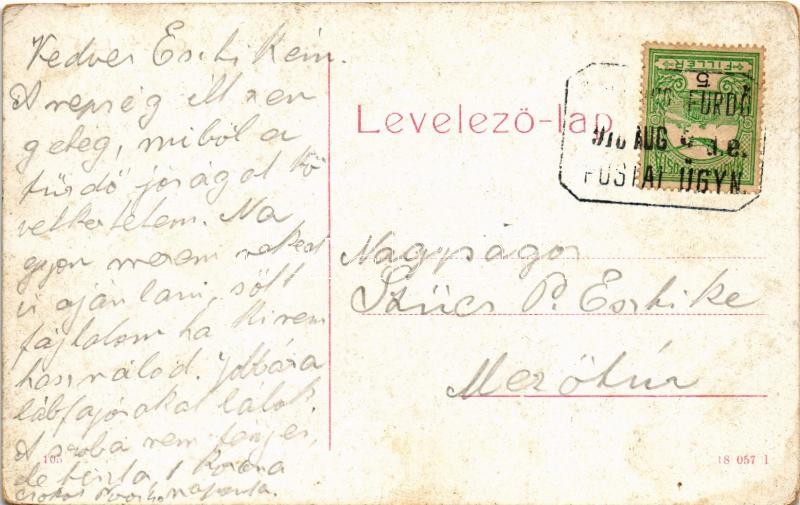 Kedves Esztikém.
A népség itt ren
geteg, miből a
fürdő jóságát kö
vetkeztetem. Na
gyon merem neked
is ajánlani, sőt
fájlalom ha ki nem
használod.
lábfájósokat látok.
A szoba nem fényes,
de tiszta 1 korona
naponta.
105
Levelező-lap
FILLER
5
FÜRDŐ
910 AUG
POSTAI ÜGYN.
Nagyságos
Szücs P. Esztike
Mezőtúr
18 057 1